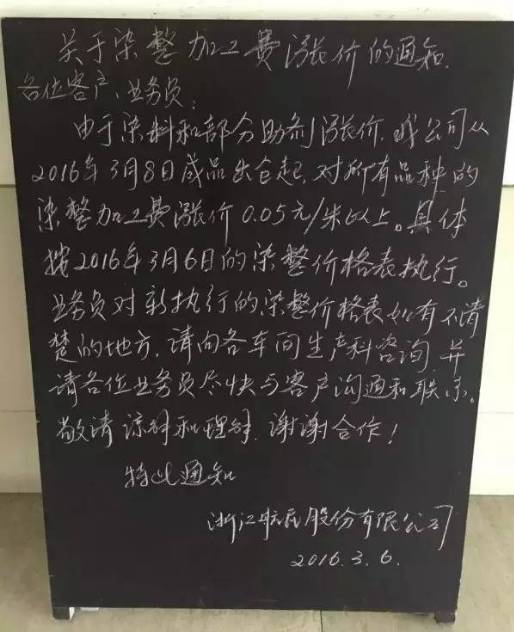 关于染整加工费涨价的通知.
各位客户、业务员:
由于染料和部分助剂涨价,我公司从
2016年3月8日成品出仓起,对所有品种的
染整加工费涨价0.05元/米以上。具体
按2016年3月6日的染整价格表执行。
业务员对新执行的染整价格表如有不清
楚的地方,请向各车间生产科咨询,并
请各位业务员尽快与客户沟通和联系。
敬请谅解和理解,谢谢合作!
特此通知
浙江航民股份有限公司
2016.3.6.